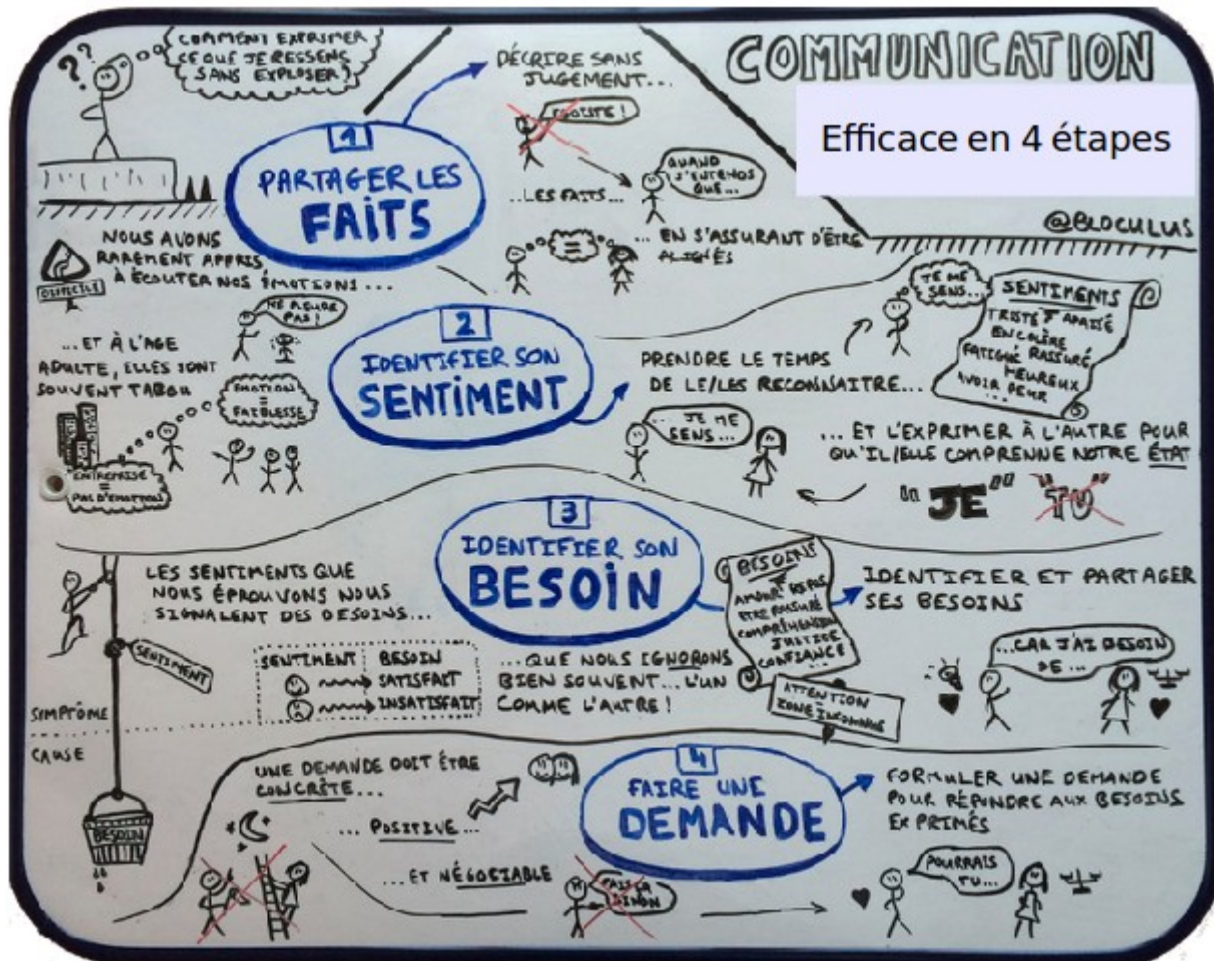 COMMUNICATION
Efficace en 4 étapes
@BLOCULUS
??
COMMENT EXPRIMER
CE QUE JE RESSENS
SANS EXPLOSER?
1
PARTAGER LES
FAITS
DÉCRIRE SANS
JUGEMENT...
EGOISTE !
...LES FAITS...
QUAND
J'ENTENDS
QUE...
=
... EN S'ASSURANT D'ÊTRE
ALIGNÉS
DIFFICILE
NOUS AVONS
RAREMENT APPRIS,
À ÉCOUTER NOS ÉMOTIONS ...
NE PLEURE
PAS !
...ET À L'AGE
ADULTE, ELLES SONT
SOUVENT TABOU
EMOTION
=
FAIBLESSE
ENTREPRISE
=
PAS D'EMOTION
2
IDENTIFIER SON
SENTIMENT
PRENDRE LE TEMPS
DE LE/LES RECONNAITRE...
JE ME
SENS...
SENTIMENTS
TRISTE APAISÉ
EN COLÈRE
FATIGUÉ RASSURÉ
HEUREUX
AVOIR PEUR
...
... JE ME
SENS...
... ET L'EXPRIMER À L'AUTRE POUR
QU'IL/ELLE COMPRENNE NOTRE ÉTAT
"JE" "TU"
3
IDENTIFIER SON
BESOIN
LES SENTIMENTS QUE
NOUS ÉPROUVONS NOUS
SIGNALENT DES BESOINS...
SENTIMENT
SYMPTÔME
CAUSE
BESOIN
SENTIMENT BESOIN
SATISFAIT
INSATISFAIT
...QUE NOUS IGNORONS
BIEN SOUVENT... L'UN
COMME L'AUTRE !
BESOINS
AMOUR REPOS
ETRE RASSURÉ
COMPRÉHENSION
JUSTICE
CONFIANCE
...
ATTENTION
ZONE INCONNUE
IDENTIFIER ET PARTAGER
SES BESOINS
...CAR J'AI BESOIN
DE...
4
FAIRE UNE
DEMANDE
UNE DEMANDE DOIT ÊTRE
CONCRÈTE...
... POSITIVE...
...ET NÉGOCIABLE
FAIS ÇA
SINON
FORMULER UNE DEMANDE
POUR RÉPONDRE AUX BESOINS
EXPRIMÉS
POURRAIS
TU...